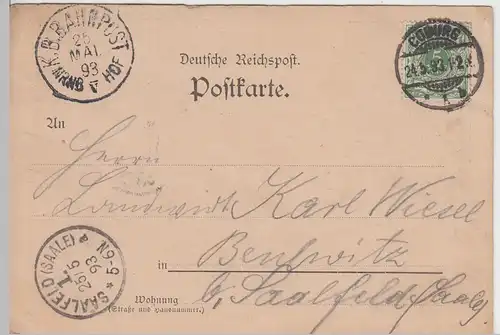 K.B. BAHNPOST
25
MAI
93
HOF
COBURG 1
24.5.93.1-2.N.
Deutsche Reichspost.
Postkarte.
An
Herrn
Landwirt Karl Wiesel
in Beulwitz
b. Saalfeld (Saale)
Wohnung
(Straße und Hausnummer.)
SAALFELD (SAALE)
1
25/5
93
5-6N